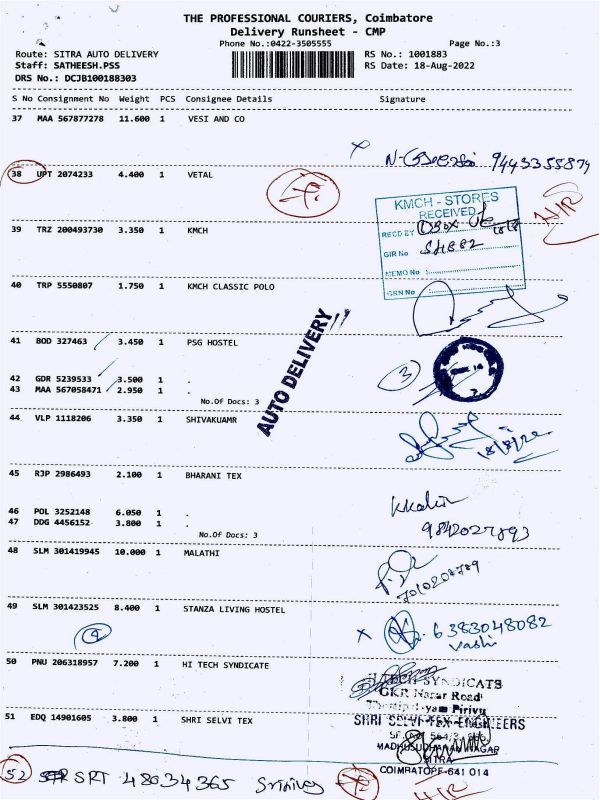 THE PROFESSIONAL COURIERS, Coimbatore
Delivery Runsheet - CMP
Phone No.:0422-3505555 Page No.:3
Route: SITRA AUTO DELIVERY RS No.: 1001883
Staff: SATHEESH.PSS RS Date: 18-Aug-2022
DRS No.: DCJB100188303
S No Consignment No Weight PCS Consignee Details Signature
37 MAA 567877278 11.600 1 VESI AND CO
9443355879
38 UPT 2074233 4.400 1 VETAL
KMCH - STORES
RECEIVED
RECD BY
39 TRZ 200493730 3.350 1 KMCH
GIR No
MEMO No
GRN No
40 TRP 5550807 1.750 1 KMCH CLASSIC POLO
AUTO DELIVERY
41 BOD 327463 3.450 1 PSG HOSTEL
3
42 GDR 5239533 3.500 1 .
43 MAA 567058471 2.950 1 .
No.Of Docs: 3
44 VLP 1118206 3.350 1 SHIVAKUAMR
18/8/22
45 RJP 2986493 2.100 1 BHARANI TEX
46 POL 3252148 6.050 1 .
47 DDG 4456152 3.800 1 .
9842027893
No.Of Docs: 3
48 SLM 301419945 10.000 1 MALATHI
49 SLM 301423525 8.400 1 STANZA LIVING HOSTEL
6383048082
50 PNU 206318957 7.200 1 HI TECH SYNDICATE
HI TECH SYNDICATS
GKR Nagar Road
51 EDQ 14901605 3.800 1 SHRI SELVI TEX
SHRI SELVI TEX ENGINEERS
MADHUSUDHANAN NAGAR
SITRA
COIMBATORE-641 014
52 SRT 48034365